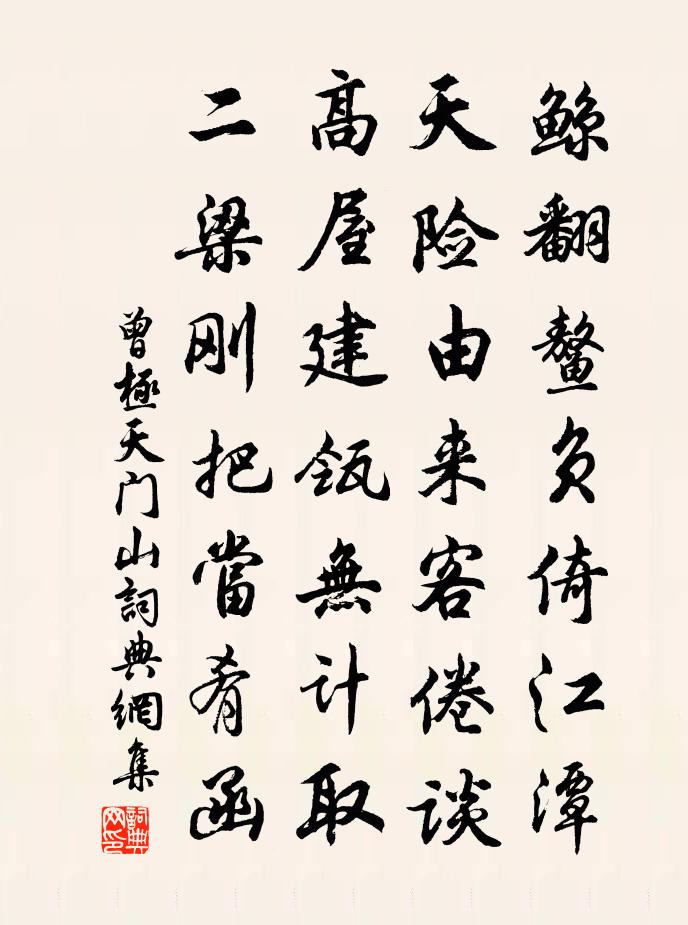 鲸翻鳌负倚江潭
天险由来客倦谈
高屋建瓴無计取
二梁刚把當肴函
曾極天门山詞典網集
詞典網印